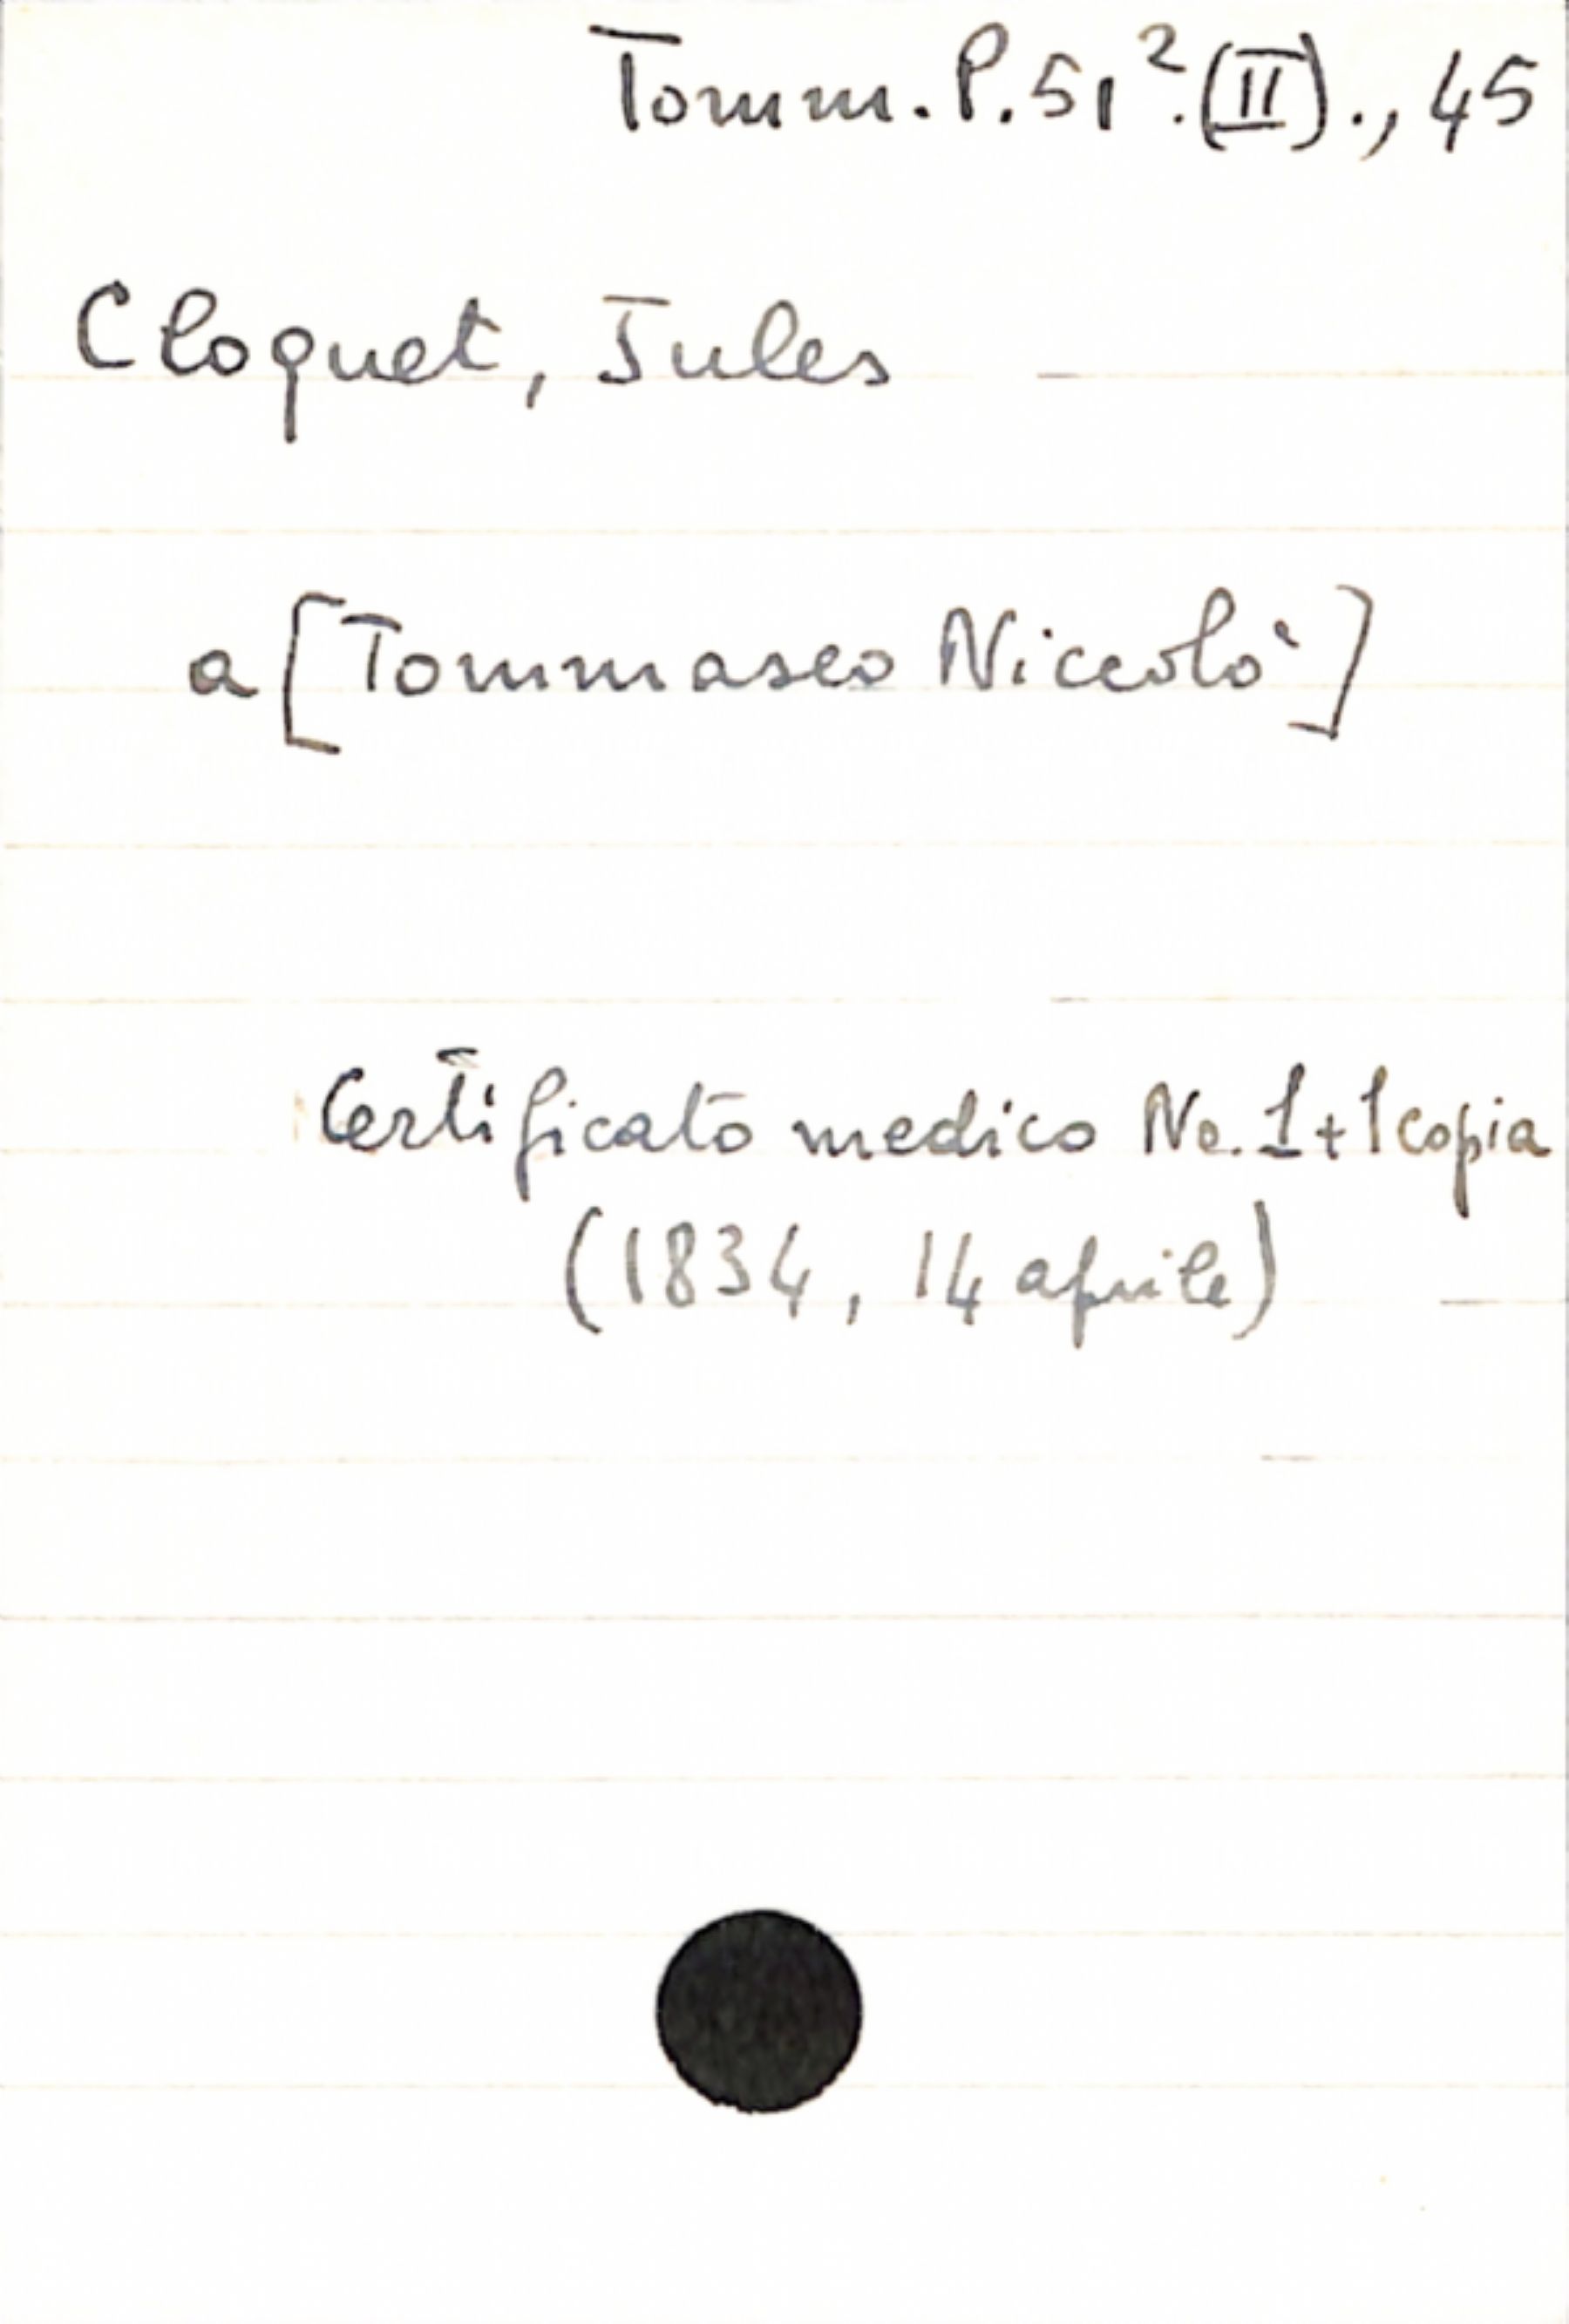 Tomm. P. 51².(II)., 45
Cloquet, Jules
a [Tommaseo Niccolò]
Certificato medico No. 1 + 1 copia
(1834, 14 aprile)